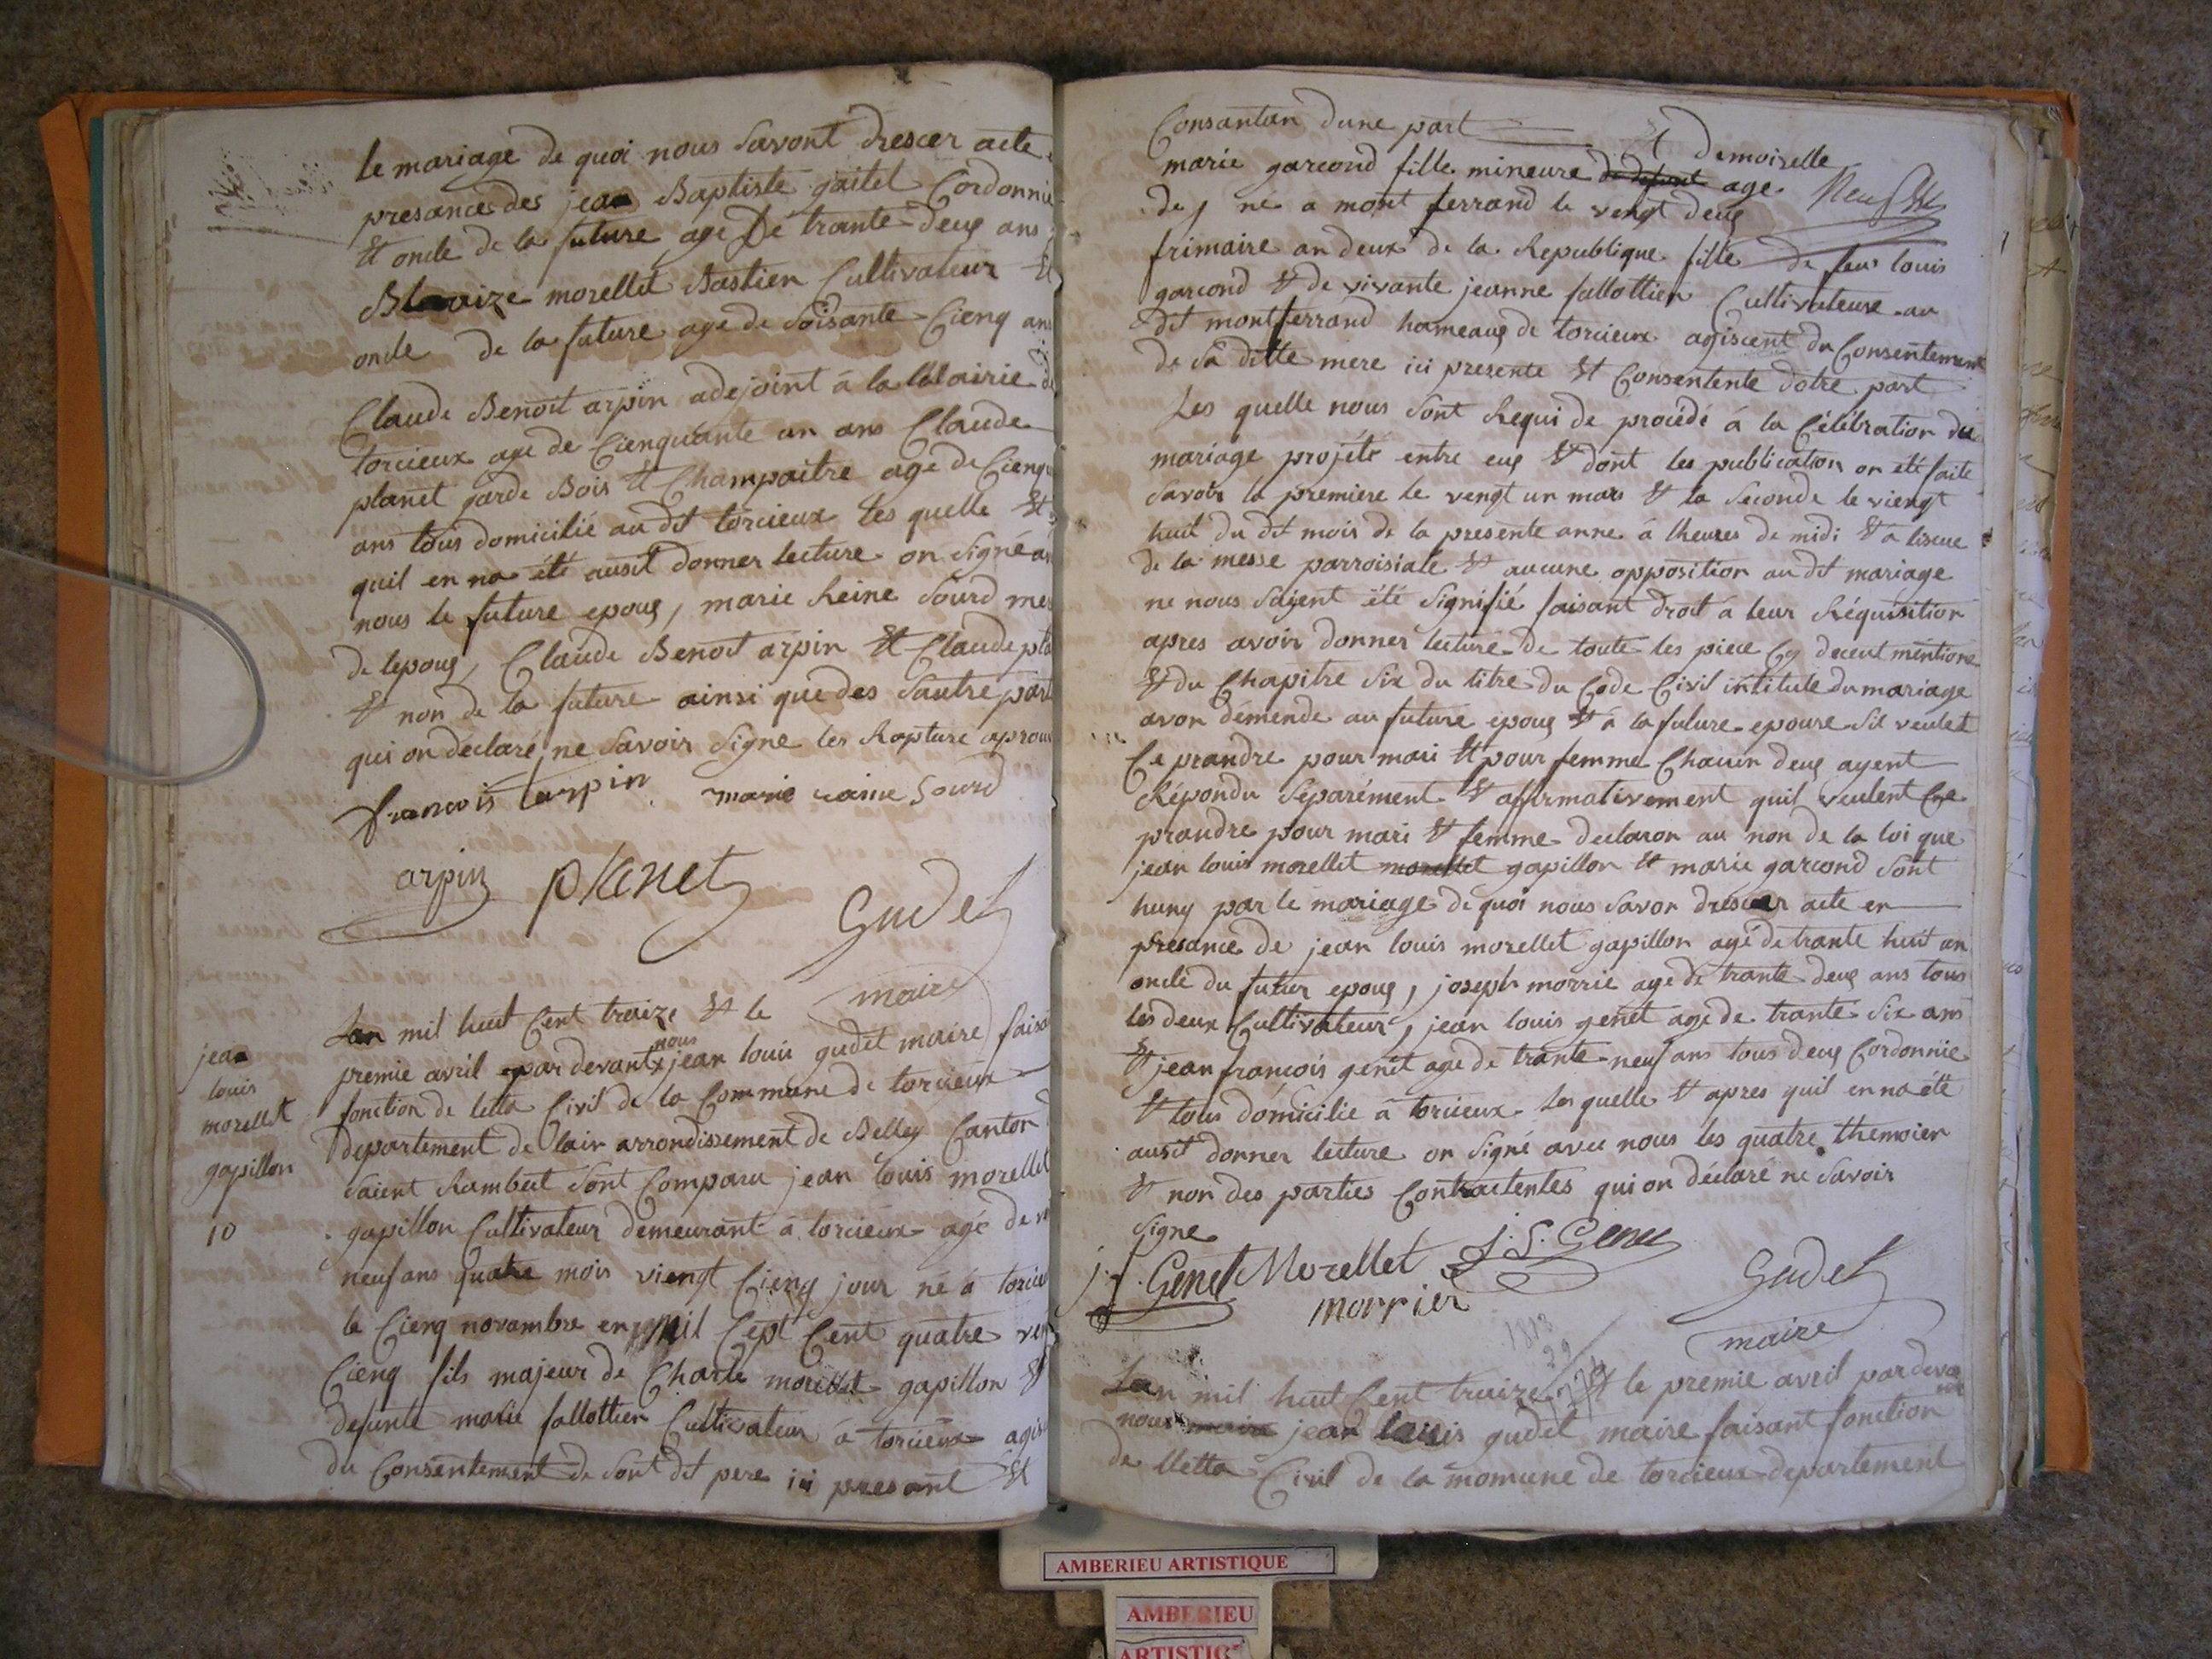 le mariage de quoi nous Savont drescer acte
presance des jean Baptiste gaitet Cordonnie
Et oncle de la future age De trante deux ans
Blaize morellet Bastien Cultivateur Et
oncle de la future age de Soisante Cienq ans
Claude Benoit arpin adejoint á la Mairie de
torcieux age de Cienquante un ans Claude
planet garde Bois Et Champaitre age de Cienq
ans tous domicilié au dit torcieux les quelle Et
quil en na été ausit donner lecture on Signé a
nous le future epoux, marie Reine Sourd mer
de lepoux, Claude Benoit arpin Et Claude pla
Et non de la future ainsi que des Sautre part
qui on déclaré ne Savoir Signe les Rapture aprou
francois tarpin marie raine Sourd
arpin planet
Gudet
maire
jean
louis
morellet
gapillon
10
Lan mil huit Cent traize Et le
premie avril par devant nous jean louis gudet maire faisa
fonction de letta Civil de la Commune de torcieux
departement de lain arrondissement de Belley Canton
Saient Rambert Sont Comparu jean louis morellet
gapillon Cultivateur demeurant á torcieux agé de v
neuf ans quatre mois viengt Cienq jour né á torcieu
le Cienq novambre en mil Cept Cent quatre ven
Cienq fils majeur de Charle morellet gapillon Et
defunte marie fallottier Cultivateur á torcieux agis
du Consentement de Sont dit pere ici presant Et
Consantan dune part Et Demoiselle
marie garcond fille mineure de defunt age
de, né a mont ferrand le vengt deux
frimaire an deux de la Republique fille de feu louis
garcond Et de vivante jeanne fallottier Cultivateure au
dit montferrand hameaux de torcieux agiscent du Consentement
de Sa ditte mere ici presente Et Consentente dotre part
Les quelle nous Sont Requi de procédé á la Célébration du
mariage projété entre eux Et dont les publication on été faite
Savoir la premiere le vengt un mars Et la Seconde le viengt
huit du dit mois de la presente anne á lheures de midi Et a liseue
de la messe parroisiale Et aucune opposition au dit mariage
ne nous Saient été Signifié faisant droit á leur Réquisition
apres avoir donner lecture de toute les piece Cy deceut mentione
Et du Chapitre Six du titre du Code Civil intitule du mariage
avon démende au future epoux Et á la future epouse Sil veulet
Ce prandre pour mari Et pour femme Chacun deux ayent
Répondu Séparément Et affirmativement quil veulent Ce
prandre pour mari Et femme declaron au non de la loi que
jean louis morellet morellet gapillon Et marie garcond Sont
huny par le mariage de quoi nous Savon drescer acte en
presance de jean louis morellet gapillon agé de trante huit an
oncle du futur epoux, joseph morrie age de trante deux ans tous
les deux Cultivateur, jean louis genet age de trante Six ans
Et jean francois genet age de trante neuf ans tous deux Cordonnie
Et tous domicilie á torcieux les quelle Et apres quil en na été
ausit donner lecture on Signé avec nous les quatre themoien
Et non des parties Contractentes qui on déclaré ne Savoir
Signe
j. f. Genet Morellet J. L. Genet
morrier
Gudet
maire
Lan mil huit Cent traize Et le premie avril par deva
nous maire jean louis gudet maire faisant fonction
de lletta Civil de la momune de torcieux departement
AMBERIEU ARTISTIQUE
AMBERIEU
ARTISTIC